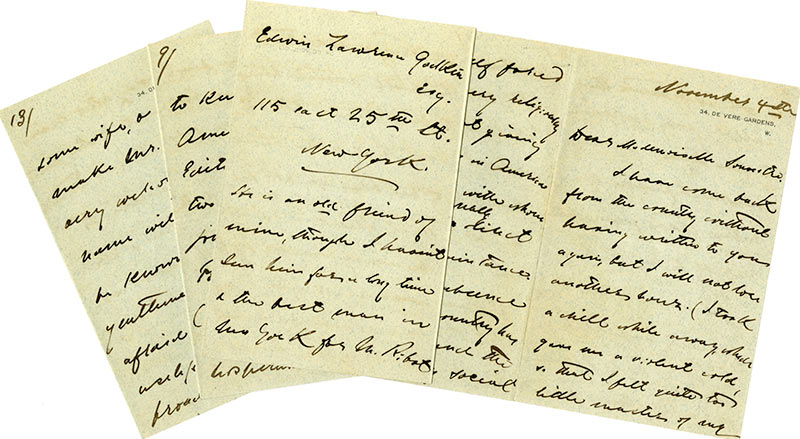 13/
34, D
some wife, a
make Mrs.
very welco
name wil
be known
gentleme
afraid
9/
to kn
Ame
Edit
two
Edwin Lawrence Godkin
Esq.
115 east 25th St.
New York.
He is an old friend of
mine, though I haven't
seen him for a long time
& the best man in
New York for M. Ribot.
elf forced
very religiously
t giving
in America
with whom
really
distinct
intance
absence
country has
and the
social
November 4th
34, DE VERE GARDENS,
W.
Dear Mademoiselle Souvestre.
I have come back
from the country without
having written to you
again, but I will not lose
another hour. (I took
a chill while away, which
gave me a violent cold,
so that I felt quite too
little master of my